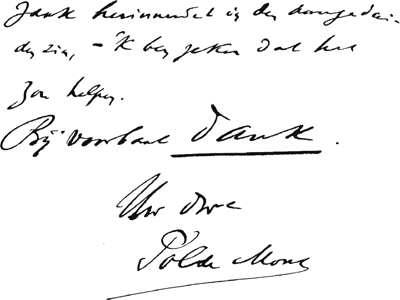 Zank herinnerdet in den aangedui-
den zin, – 'k ben zeker dat het
zou helpen.
Bij voorbaat dank.
Uw dwe
Pol de Mont